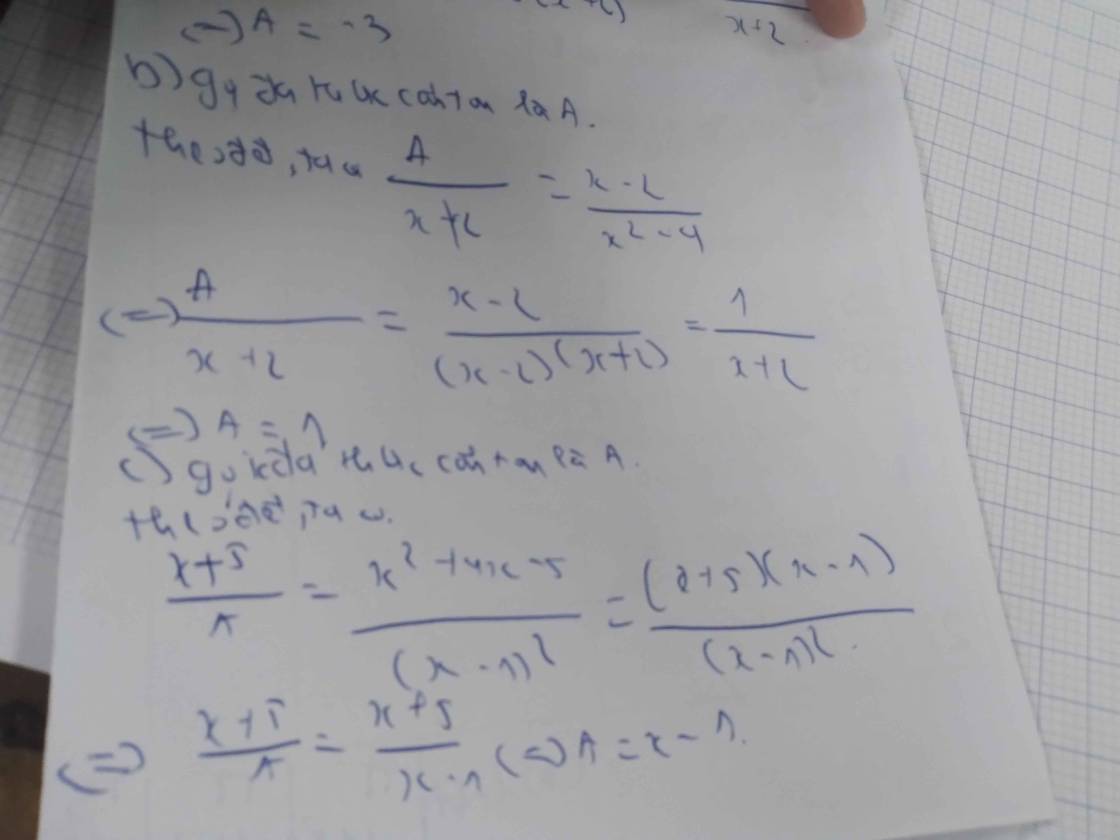 (x+2)
x+2
(=) A = -3
b) gọi đa thức cần tìm là A.
theo đề, ta có A/(x+2) = (x-2)/(x²-4)
(=) A/(x+2) = (x-2)/((x-2)(x+2)) = 1/(x+2)
(=) A = 1
c) gọi đa thức cần tìm là A.
theo đề, ta có.
(x+5)/A = (x²+4x-5)/(x-1)² = (x+5)(x-1)/(x-1)².
(=) (x+5)/A = (x+5)/(x-1) (=) A = x-1.